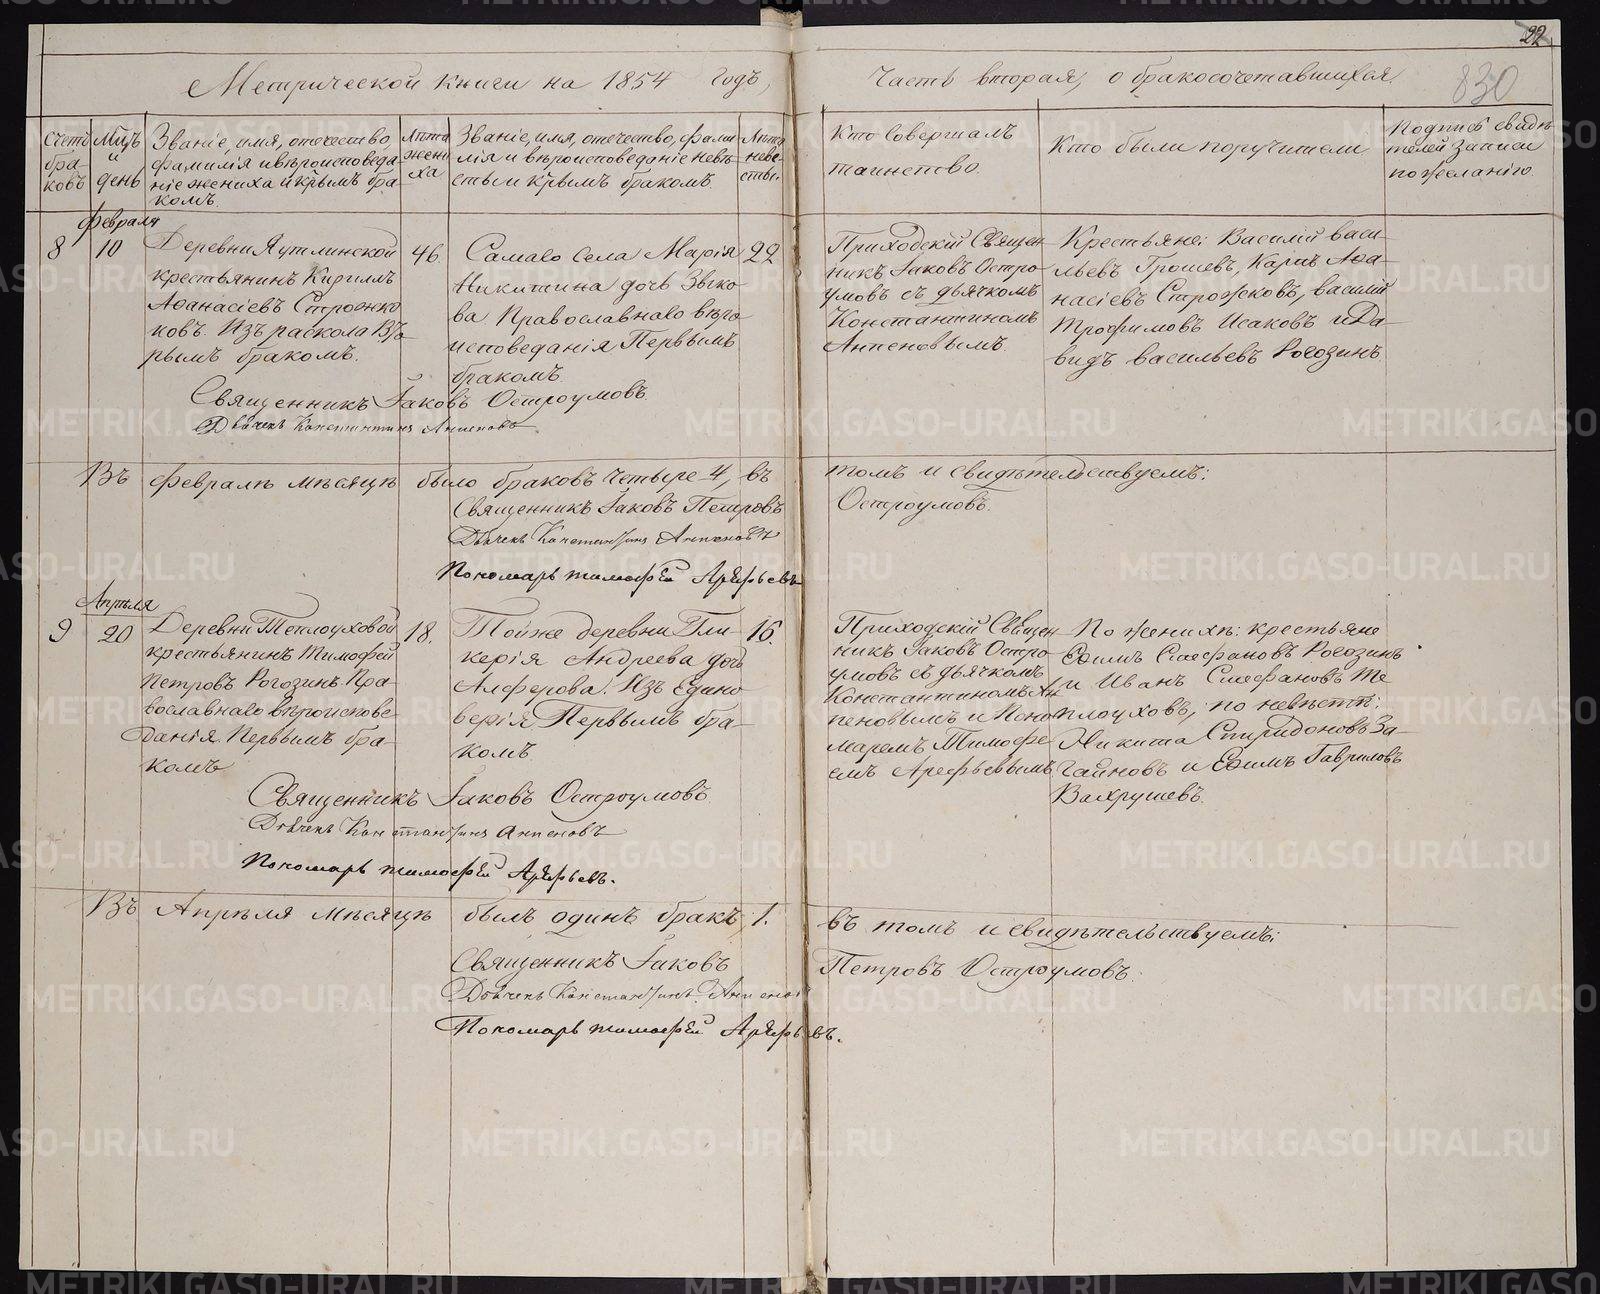 22
830
Метрической книги на 1854 годъ,
Часть вторая, о бракосочетавшихся
Счетъ бра-ковъ
Мцъ и день
Званіе, имя, отечество,
фамилія и вѣроисповеда-
ніе жениха и крымъ бра-
комъ.
Лѣта жени-ха
Званіе, имя, отечество, фами-
лія и вѣроисповеданіе невѣ-
сты и крымъ бракомъ.
Лѣта неве-сты.
Кто совершалъ
таинство.
Кто были поручители
Подпись свидѣ-
телей записи
по желанію.
Февраля
8
10
Деревни Яутлинской
крестьянинъ Кириллъ
Аѳанасіевъ Строжко
ковъ. Изъ раскола Вто
рымъ бракомъ.
46.
Самаго села Марія
Никитина дочь Зыко-
ва Православнаго вѣро
исповеданія Первымъ
бракомъ.
22
Приходскій Священ
никъ Іаковъ Остро-
умовъ съ дьячкомъ
Константиномъ
Анпеновымъ.
Крестьяне: Василій Васи-
льевъ Грошевъ, Карпъ Аѳа-
насіевъ Строжковъ, Василій
Трофимовъ Исаковъ и Да-
видъ Васильевъ Рогозинъ.
Священникъ Іаковъ Остроумовъ.
Дьячекъ Константинъ Анпеновъ
Въ февралѣ мѣсяцѣ было браковъ четыре 4, въ
томъ и свидѣтельствуемъ:
Священникъ Іаковъ Петровъ
Остроумовъ.
Дьячекъ Константинъ Анпеновъ
Пономарь Тимофей Арефьевъ
Апрѣля
9
20
Деревни Теплоуховой
крестьянинъ Тимофей
Петровъ Рогозинъ Пра-
вославнаго вѣроиспове-
данія. Первымъ бра-
комъ
18.
Той же деревни Гли-
керія Андреева дочь
Алферова. Изъ Едино
верія Первымъ бра-
комъ
16.
Приходскій Священ
никъ Іаковъ Остро-
умовъ съ дьячкомъ
Константиномъ Ан
пеновымъ и Поно
маремъ Тимофе
емъ Арефьевымъ
По женихѣ: крестьяне
Еѳимъ Стефановъ Рогозинъ
и Иванъ Стефановъ Те
плоуховъ; по невѣстѣ:
Никита Спиридоновъ За-
гайновъ и Еѳимъ Гавриловъ
Вахрушевъ.
Священникъ Іаковъ Остроумовъ.
Дьячекъ Константинъ Анпеновъ
Пономарь Тимофей Арефьевъ.
Въ Апрѣля мѣсяцѣ былъ одинъ бракъ 1.
въ томъ и свидѣтельствуемъ:
Священникъ Іаковъ
Петровъ Остроумовъ.
Дьячекъ Константинъ Анпеновъ
Пономарь Тимофей Арефьевъ.
METRIKI.GASO-URAL.RU